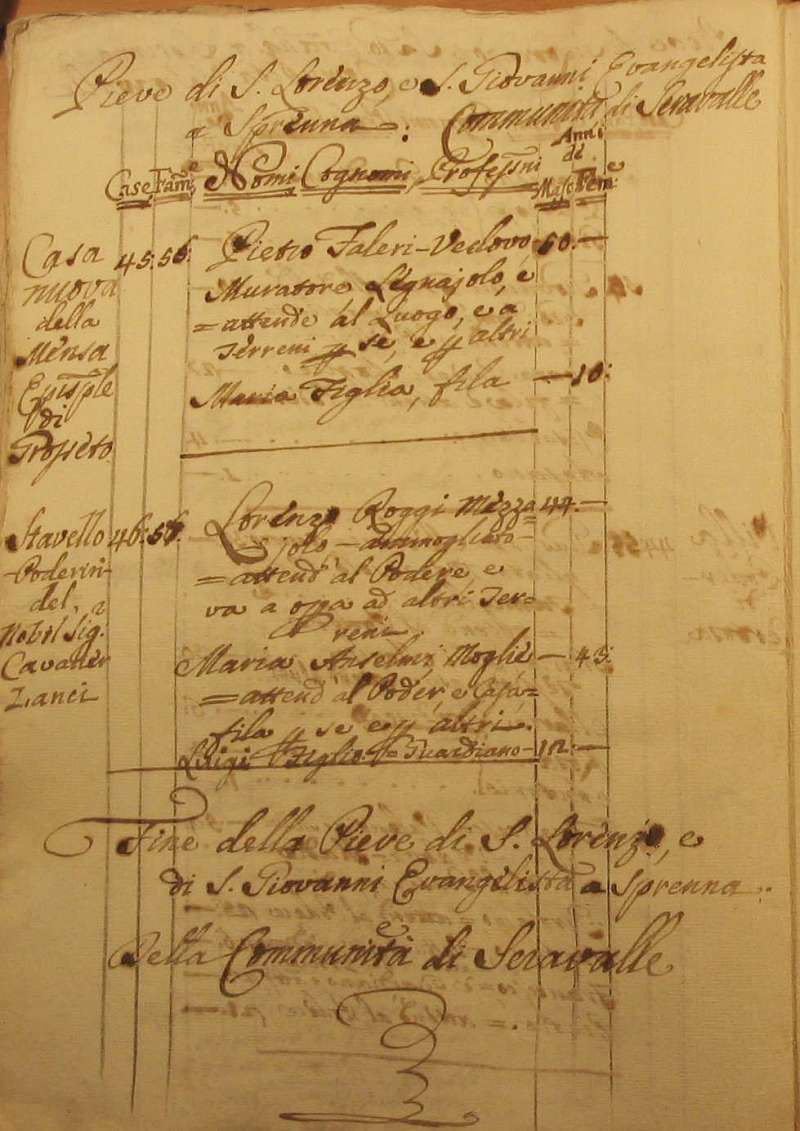 Pieve di S. Lorenzo, e S. Giovanni Evangelista
a Sprenna: Communità di Seravalle
Case, Fame, Nomi, Cognomi, Professni
Anni
di
Masc: Feme:
Casa
nuova
della
Mensa
Episple
di
Grosseto
45: 56:
Pietro Faleri - Vedovo, 50. —
Muratore, Legnajolo, e
= attende al Luogo, e a
Terreni p se, e p altri
Maria Figlia, fila — 10:
Stavello
Poderin
del
Nobil Sig.
Cavalier
Zanci
46: 57:
Lorenzo Roggi Mezza 44. —
jolo - ammogliato -
= attend' al Podere, e
va a opa ad altri Ter-
reni.
Maria Anselmi Moglie — 45:
= attend' al Poder, e Casa =
fila p se e p altri.
Luigi Figlio = Guardiano - 12. —
Fine della Pieve di S. Lorenzo, e
di S. Giovanni Evangelista a Sprenna.
Della Communità di Seravalle